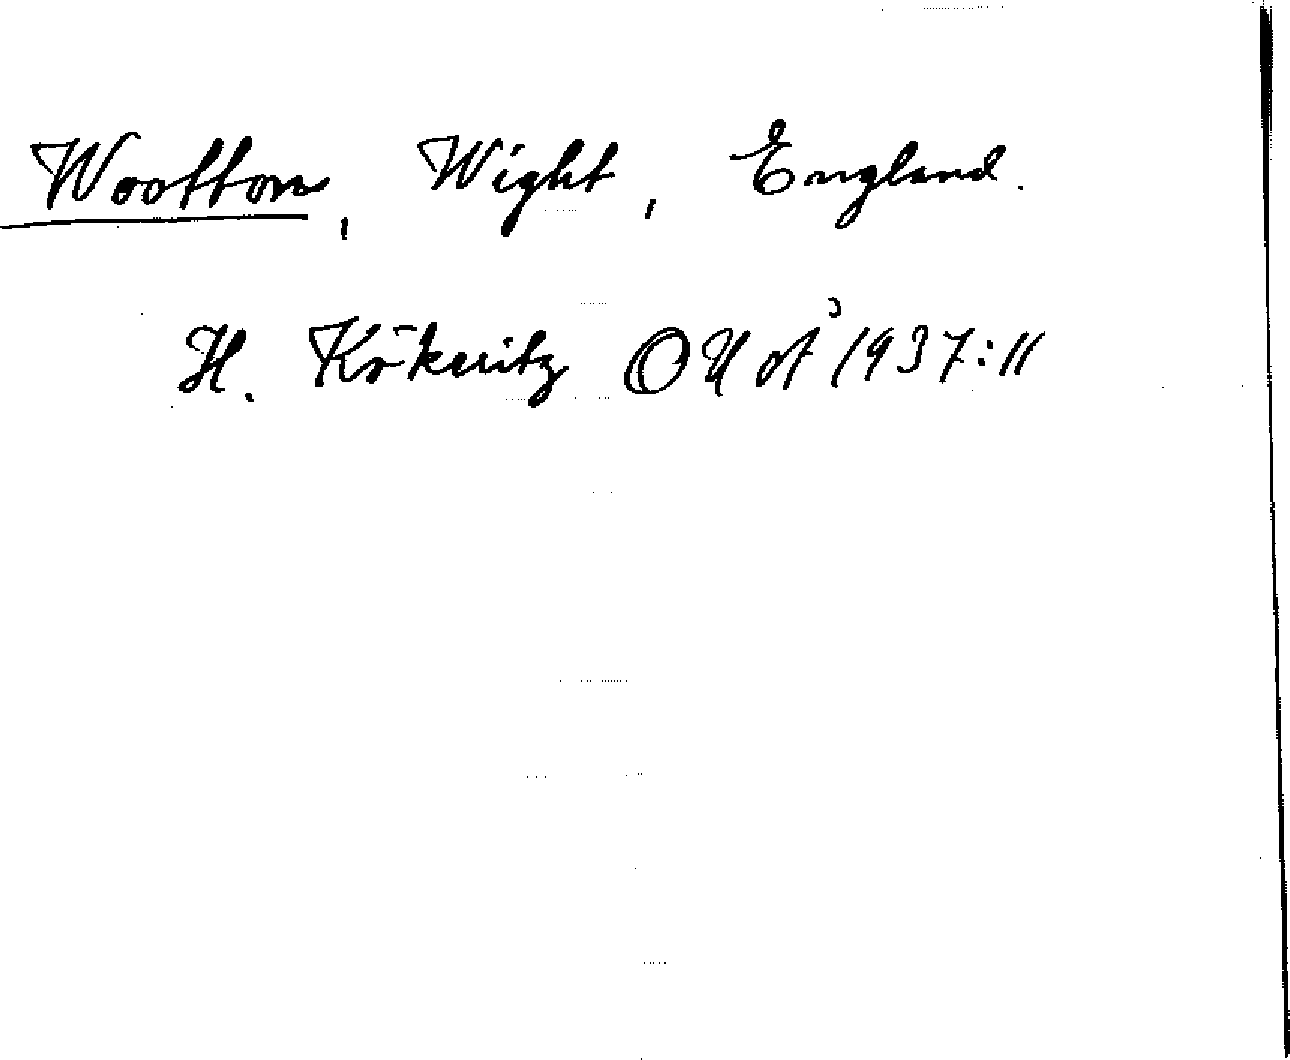 Wootton, Wight, England.
H. Kökeritz OUÅ 1937:11